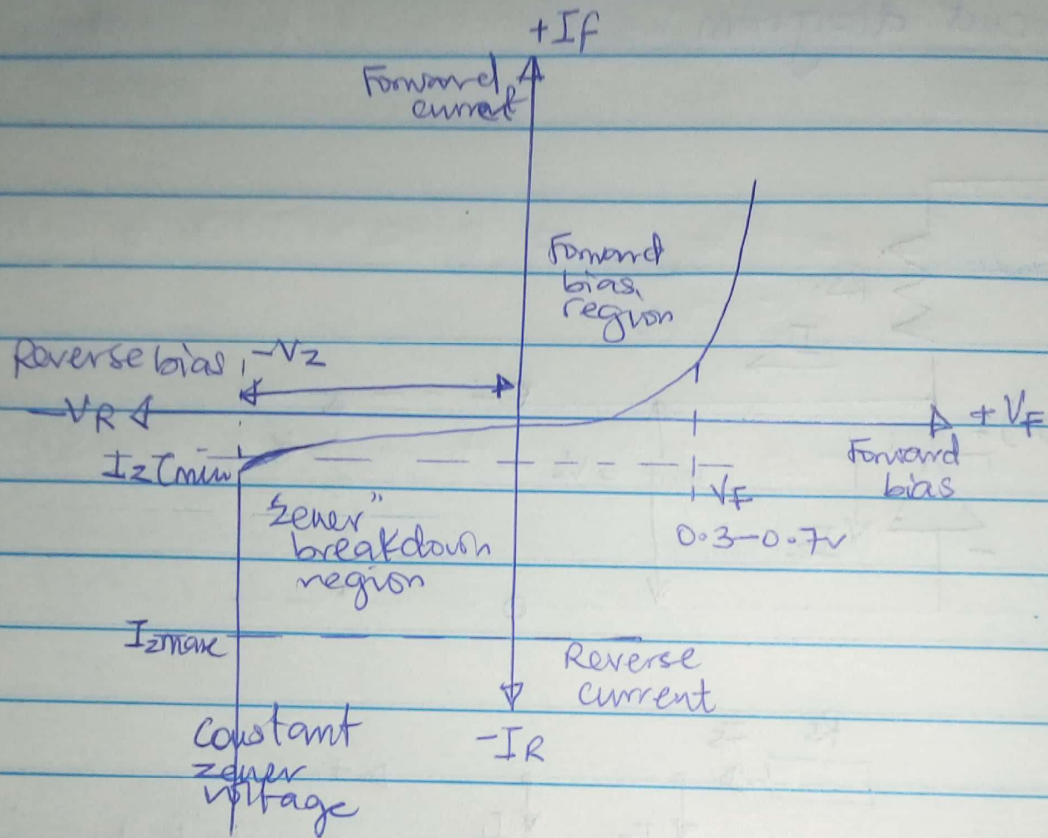 +If
Forward
current
Forward
bias
region
Reverse bias, -Vz
-VR
+ VF
Iz(min)
Forward
bias
VF
0.3-0.7v
"zener"
breakdown
region
Izmax
Reverse
current
-IR
constant
zener
voltage